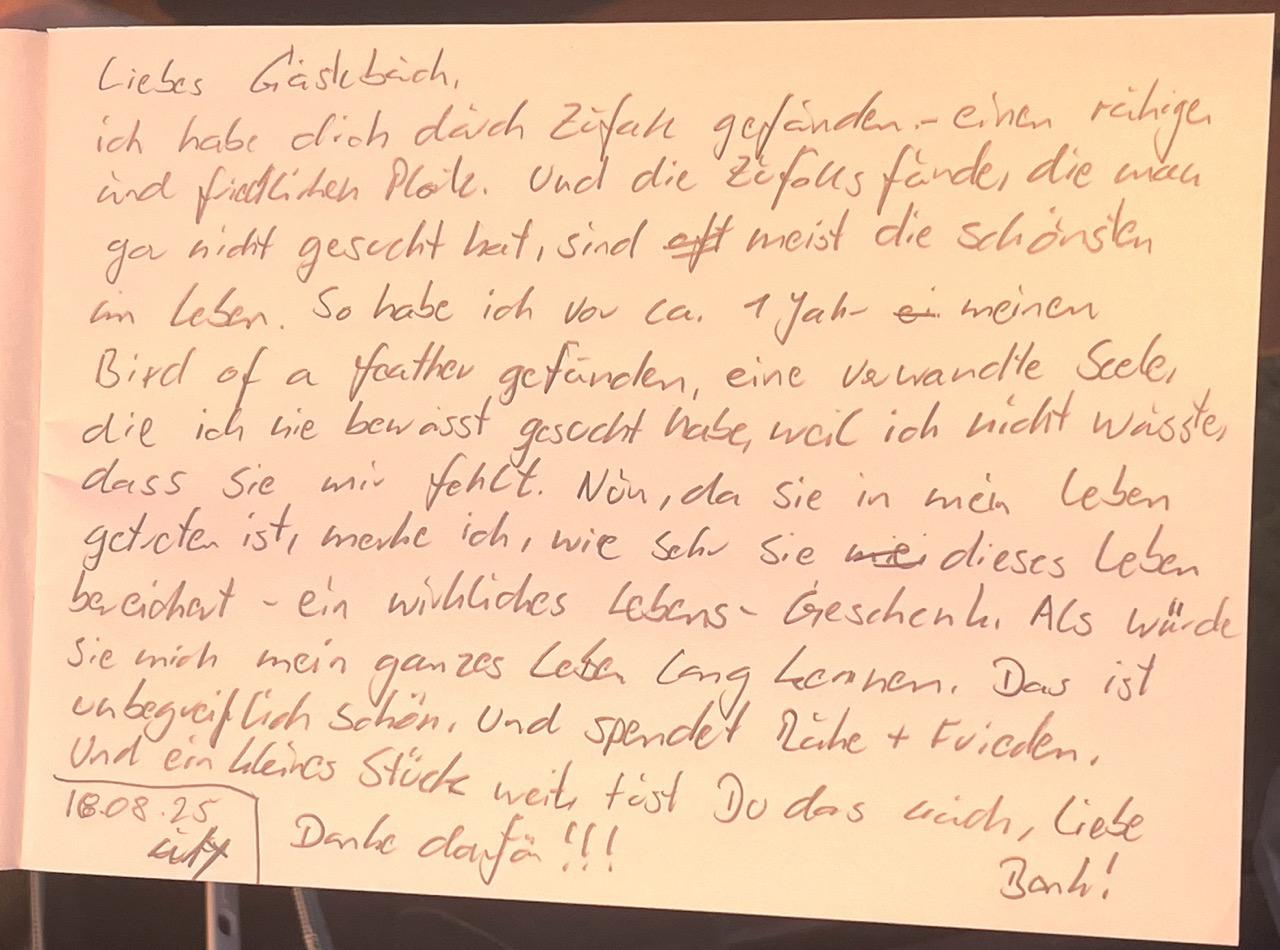 Liebes Gästebuch,
ich habe dich durch Zufall gefunden - einen ruhigen
und friedlichen Platz. Und die Zufallsfunde, die man
gar nicht gesucht hat, sind oft meist die schönsten
im Leben. So habe ich vor ca. 1 Jahr ei meinen
Bird of a feather gefunden, eine verwandte Seele,
die ich nie bewusst gesucht habe, weil ich nicht wusste,
dass sie mir fehlt. Nun, da sie in mein Leben
getreten ist, merke ich, wie sehr sie dieses Leben
bereichert - ein wirkliches Lebens-Geschenk. Als würde
sie mich mein ganzes Leben lang kennen. Das ist
unbegreiflich schön. Und spendet Ruhe + Frieden.
Und ein kleines Stück weit tust Du das auch, liebe
Bank!
Danke dafür!!!
18.08.25